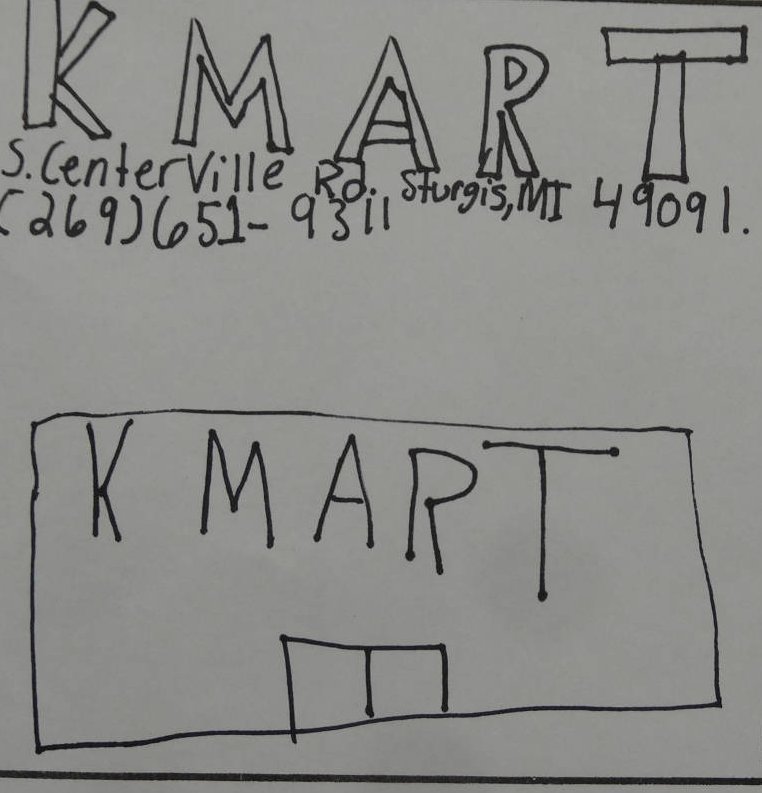 K MART
S. Centerville Rd. Sturgis, MI 49091.
(269)651-9311
K MART